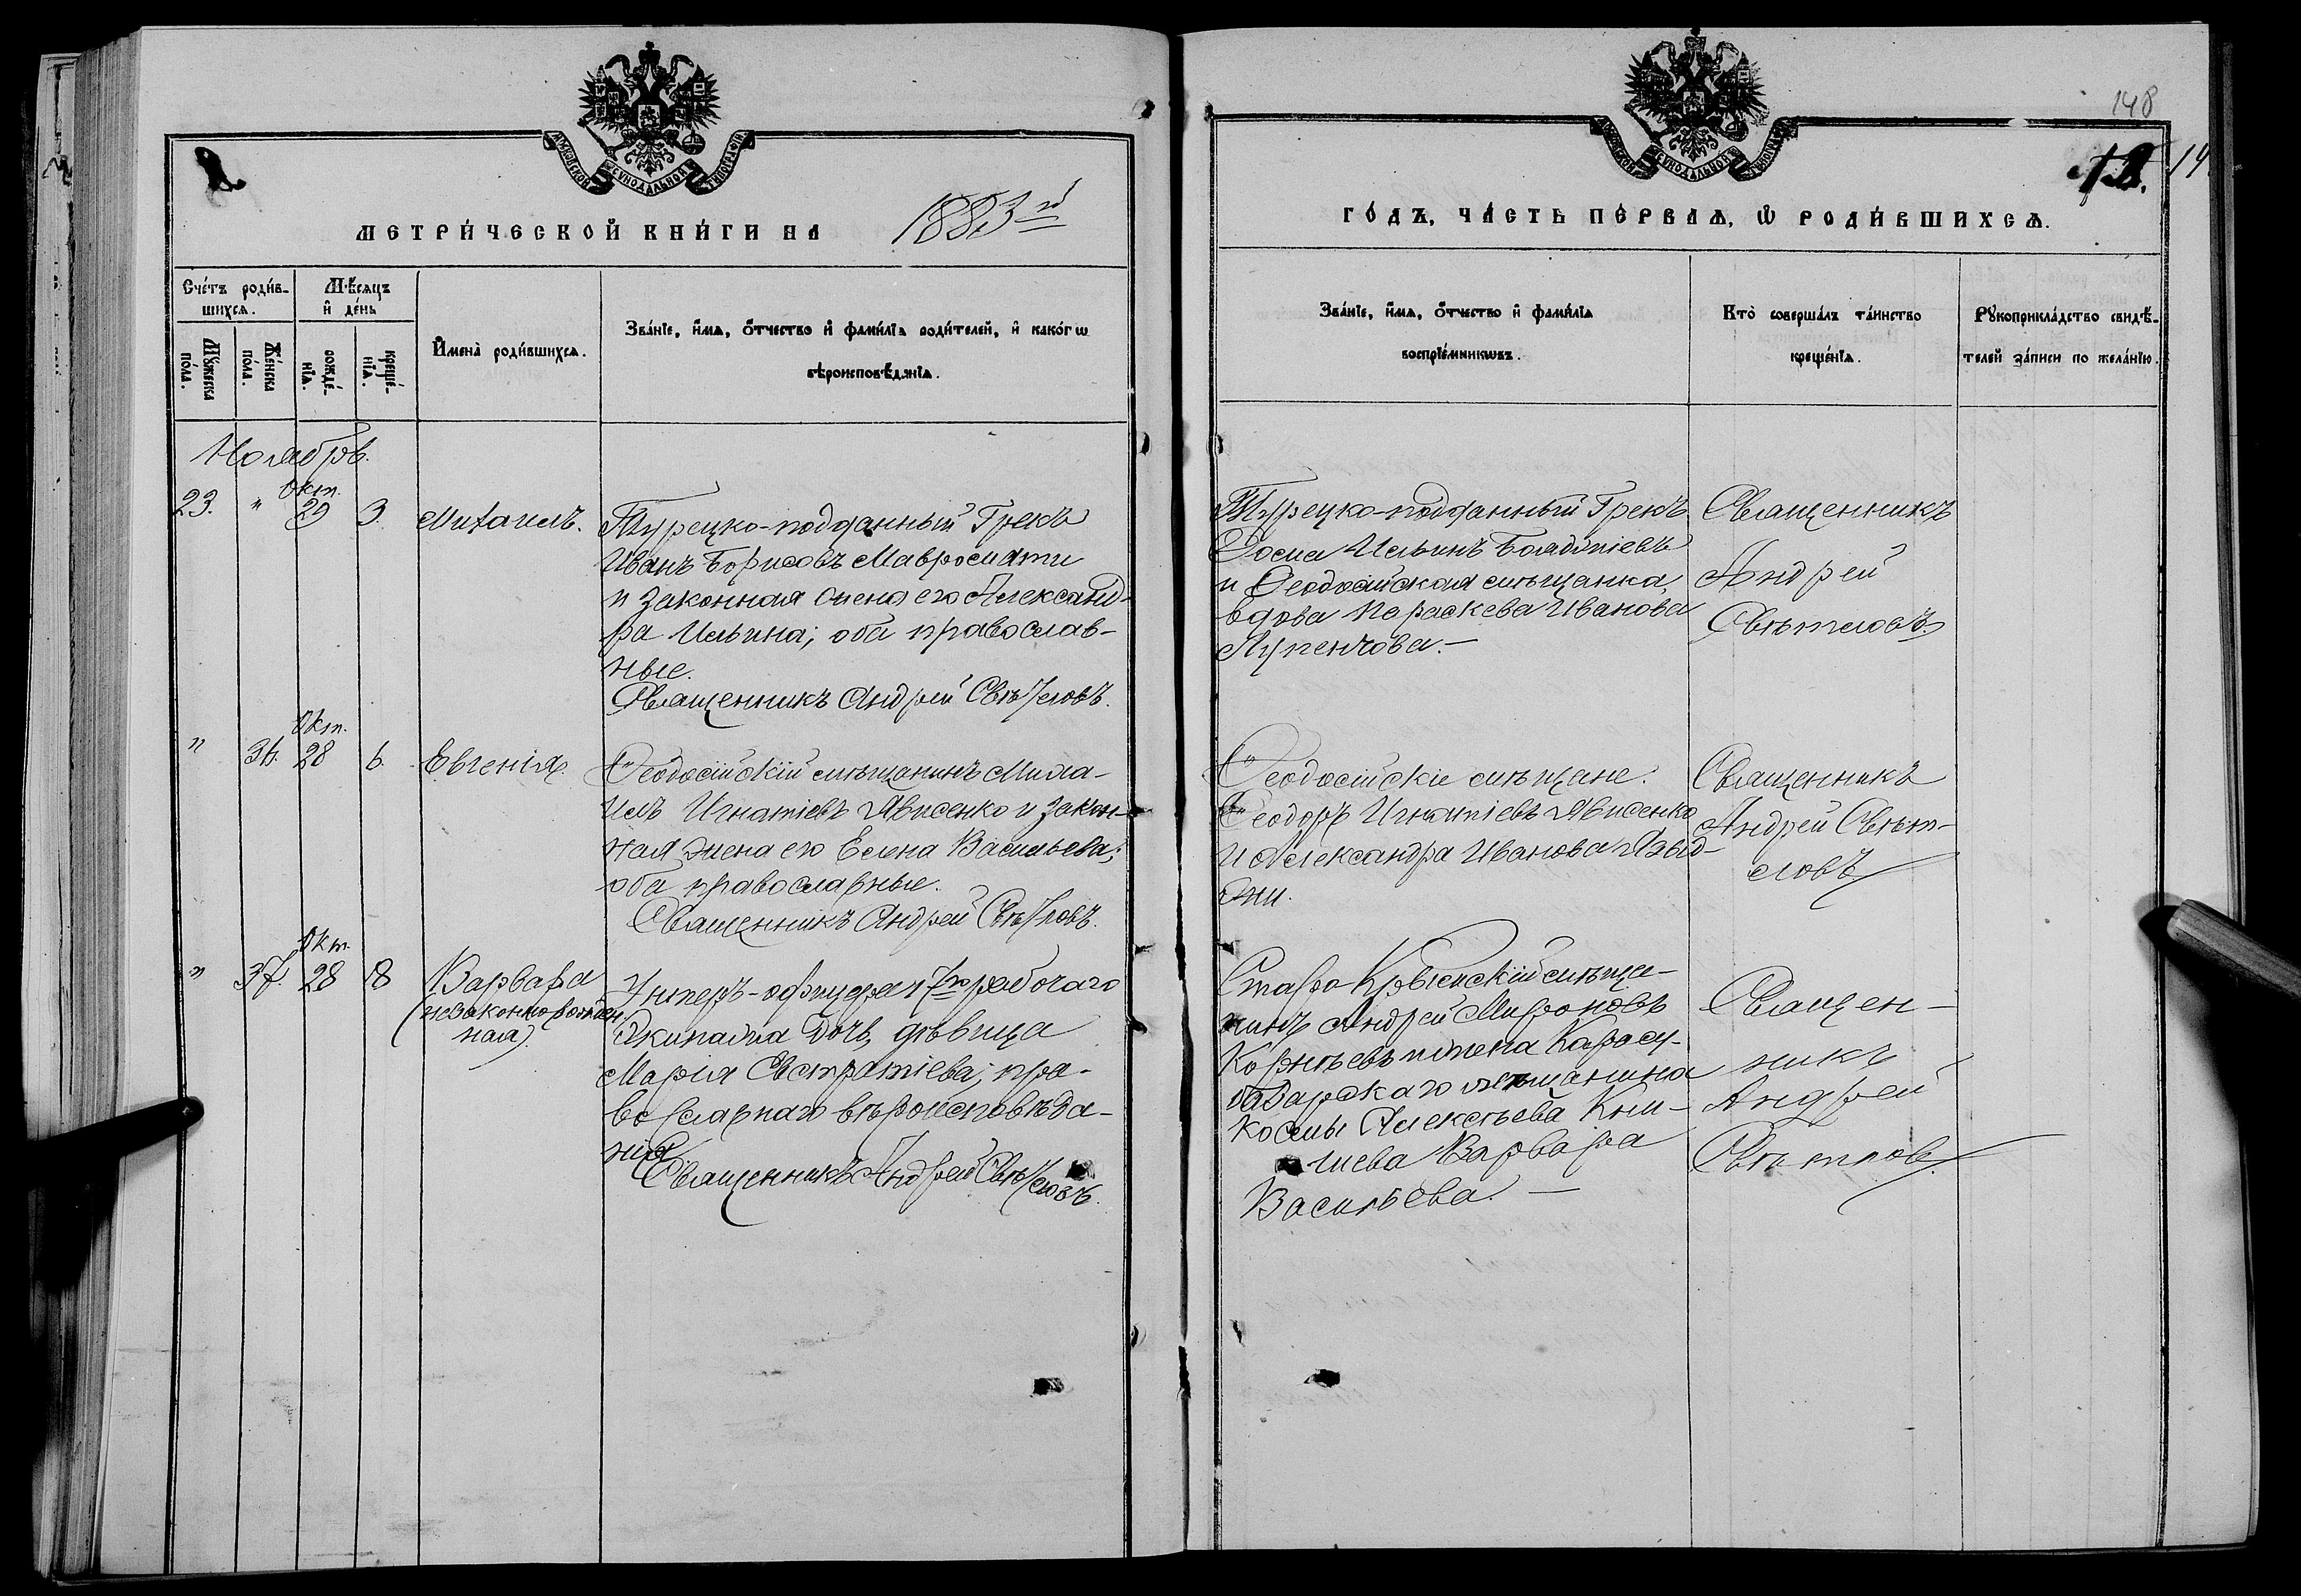 148
14
12.
МОСКОВСКОЙ СѴНОДАЛЬНОЙ ТИПОГРАФІИ
МЕТРИ́ЧЕСКОЙ КНИ́ГИ НА 1883й
ГО́ДЪ, ЧА́СТЬ ПЕ́РВАѦ, Ѽ РОДИ́ВШИХСѦ.
Сче́тъ роди́в-
шихсѧ.
Мѣ́сѧцъ
и҆ де́нь
Мꙋ́жеска
по́ла.
Же́нска
по́ла.
рожде́-
нїѧ.
креще́-
нїѧ.
И҆мена̀ роди́вшихсѧ.
Зва́нїе, и҆́мѧ, ѻ҆́тчество и҆ фами́лїѧ роди́телей, и҆ како́гѡ
вѣроисповѣ́данїѧ.
Зва́нїе, и҆́мѧ, ѻ҆́тчество и҆ фами́лїѧ
воспрїе́мникѡвъ.
Кто̀ соверша́лъ та́инство
креще́нїѧ.
Рꙋкоприкла́дство свидѣ́-
телей за́писи по жела́нїю.
Ноябрь.
Окт.
23. " 29 3. Михаилъ.
Турецко-подданный Грекъ
Иванъ Борисовъ Мавромати
и законная жена его Александ-
ра Ильина; оба православ-
ные.
Священникъ Андрей Свѣтловъ.
Турецко-подданный Грекъ
Ѳома Ильинъ
и Ѳеодосійская мѣщанка,
вдова Параскева Иванова
Лупенкова.—
Священникъ
Андрей
Свѣтловъ.
Окт.
" 36. 28 6. Евгенія.
Ѳеодосійскій мѣщанинъ Миха-
илъ Игнатіевъ Явисенко и закон-
ная жена его Елена Васильева;
оба православные.
Священникъ Андрей Свѣтловъ.
Ѳеодосійскіе мѣщане:
Ѳеодоръ Игнатіевъ Явисенко
и Александра Иванова
Священникъ
Андрей Свѣт-
ловъ
Окт.
" 37. 28 8 Варвара
(незаконнорожден-
ная).
Унтеръ-офицера 17го рабочаго
Экипажа дочь, дѣвица
Марія Евстратіева; пра-
вославнаго вѣроисповѣда-
нія
Священникъ Андрей Свѣтловъ.
Старо-Крымскій мѣща-
нинъ Андрей Мироновъ
Корнѣевъ и жена Карасу-
базарскаго мѣщанина
Космы Алексѣева Клим-
Варвара
Васильева.—
Священ-
никъ
Андрей
Свѣтловъ.